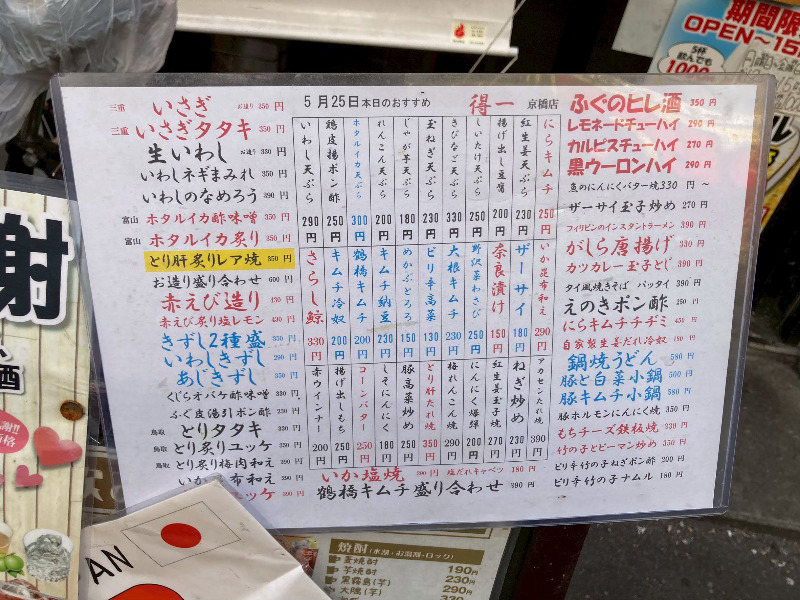 5月25日本日のおすすめ 得一 京橋店
三重 いさぎ お造り 350円
三重 いさぎタタキ 330円
生いわし お造り 330円
いわしネギまみれ 350円
いわしのなめろう 390円
富山 ホタルイカ酢味噌 350円
富山 ホタルイカ炙り 250円
とり肝炙りレア焼 350円
お造り盛り合わせ 600円
赤えび造り 430円
赤えび炙り塩レモン 430円
きずし2種盛 350円
いわしきずし 290円
あじきずし 350円
くじらオバケ酢味噌 330円
ふぐ皮湯引ポン酢 230円
鳥取 とりタタキ 330円
鳥取 とり炙りユッケ 390円
とり炙り梅肉和え 390円
いか昆布和え 390円
ユッケ 390円
いわし天ぷら 290円
鶏皮揚ポン酢 250円
ホタルイカ天ぷら 300円
れんこん天ぷら 200円
じゃが芋天ぷら 180円
玉ねぎ天ぷら 230円
きびなご天ぷら 330円
しいたけ天ぷら 250円
揚げ出し豆腐 200円
紅生姜天ぷら 230円
にらキムチ 250円
さらし鯨 330円
キムチ冷奴 200円
鶴橋キムチ 200円
キムチ納豆 230円
めかぶとろろ 150円
ピリ辛高菜 130円
大根キムチ 230円
野沢菜わさび 250円
奈良漬け 150円
ザーサイ 180円
いか昆布和え 290円
赤ウインナー 200円
揚げ出しもち 250円
コーンバター 250円
しそにんにく 180円
豚高菜炒め 250円
とり肝たれ焼 350円
梅れんこん焼 290円
にんにく爆弾 200円
紅生姜玉子焼 270円
ねぎ炒め 230円
アカセンたれ焼 390円
いか塩焼 390円 塩だれキャベツ 180円
鶴橋キムチ盛り合わせ 390円
ふぐのヒレ酒 350円
レモネードチューハイ 290円
カルピスチューハイ 270円
黒ウーロンハイ 290円
魚のにんにくバター焼 330円～
ザーサイ玉子炒め 270円
フィリピンのインスタントラーメン 390円
がしら唐揚げ 330円
カツカレー玉子とじ 390円
タイ風焼きそば パッタイ 390円
えのきポン酢 250円
にらキムチチヂミ 430円
自家製生姜だれ冷奴 190円
鍋焼うどん 580円
豚と白菜小鍋 500円
豚キムチ小鍋 580円
豚ホルモンにんにく焼 350円
もちチーズ鉄板焼 330円
竹の子とピーマン炒め 350円
ピリ辛竹の子ねぎポン酢 200円
ピリ辛竹の子ナムル 180円
期間限
OPEN～15
5杯
飲んでも
1000
射
酒
AN
焼酎(水湯・お湯湯・ロック)
麦焼酎 190円
芋焼酎 230円
黒霧島(芋) 290円
大隅(芋) 330